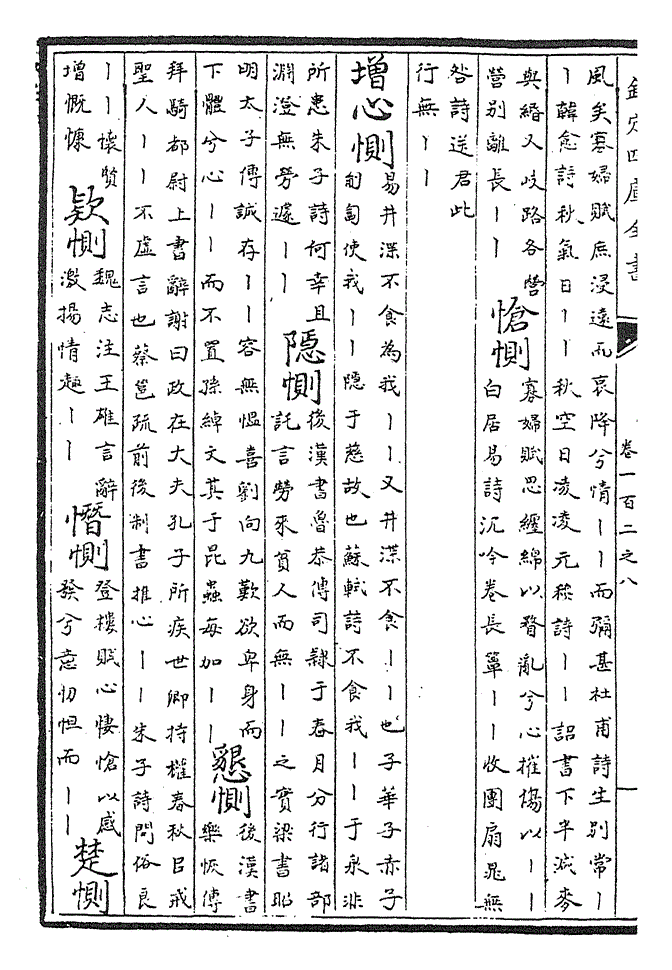 欽定四庫全書
卷一百二之八
一
風矣寡婦賦庶浸遠而哀降兮情丨丨而彌甚杜甫詩生別常丨
丨韓愈詩秋氣日丨丨秋空日凌凌元稹詩丨丨詔書下半減麥
與緡又歧路各營
營別離長丨丨
愴惻
寡婦賦思纏綿以瞀亂兮心摧傷以丨丨
白居易詩沉吟卷長簟丨丨收團扇晁無
咎詩送君此
行無丨丨
增心惻
易井渫不食為我丨丨又井渫不食丨丨也子華子赤子
匍匐使我丨丨隱于慈故也蘇軾詩不食我丨丨于泉非
所患朱子詩何幸且
淵澄無勞遽丨丨
隱惻
後漢書魯恭傳司隸于春月分行諸部
託言勞來貧人而無丨丨之實梁書昭
明太子傳誠存丨丨容無愠喜劉向九歎欲卑身而
下體兮心丨丨而不置孫綽文其于昆蟲每加丨丨
懇惻
後漢書
樂恢傳
拜騎都尉上書辭謝曰政在大夫孔子所疾世卿持權春秋㠯戒
聖人丨丨不虛言也蔡邕疏前後制書推心丨丨朱子詩問俗良
丨丨懷賢
增慨慷
欵惻
魏志注王雄言辭
激揚情趣丨丨
憯惻
登樓賦心悽愴以感
發兮意忉怛而丨丨
楚惻